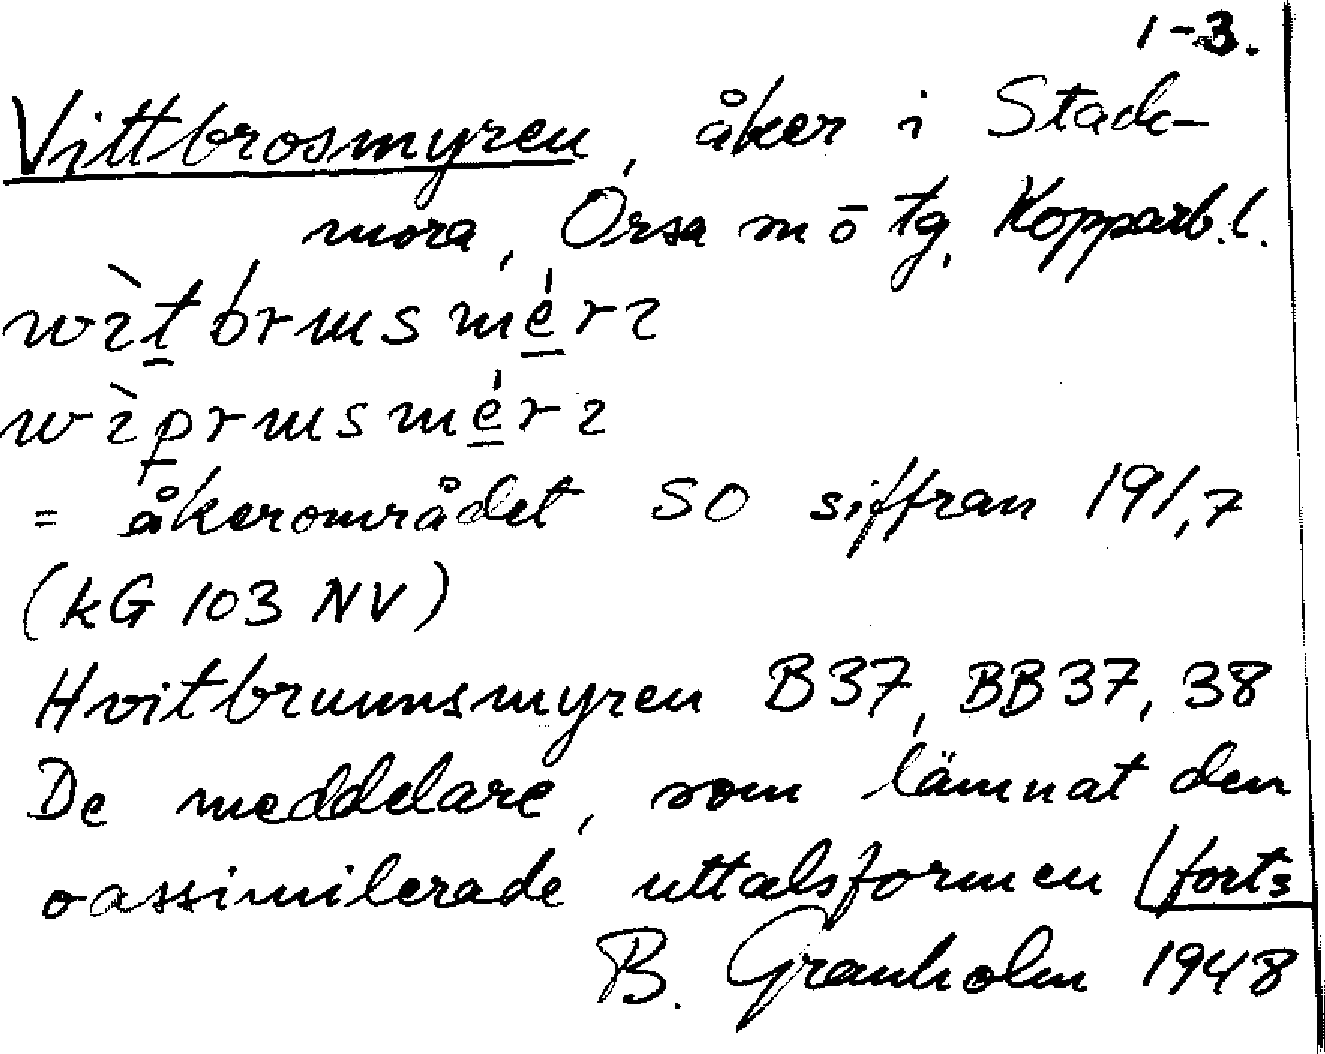 1-3.
Vittbrosmyren, åker i Stack-
mora, Orsa sn ō tg, Kopparb.l.
= åkerområdet SO siffran 191,7
(kG 103 NV)
Hvitbrunnsmyren B37, BB37, 38
De meddelare, som lämnat den
oassimilerade uttalsformen (forts
B. Granholm 1948